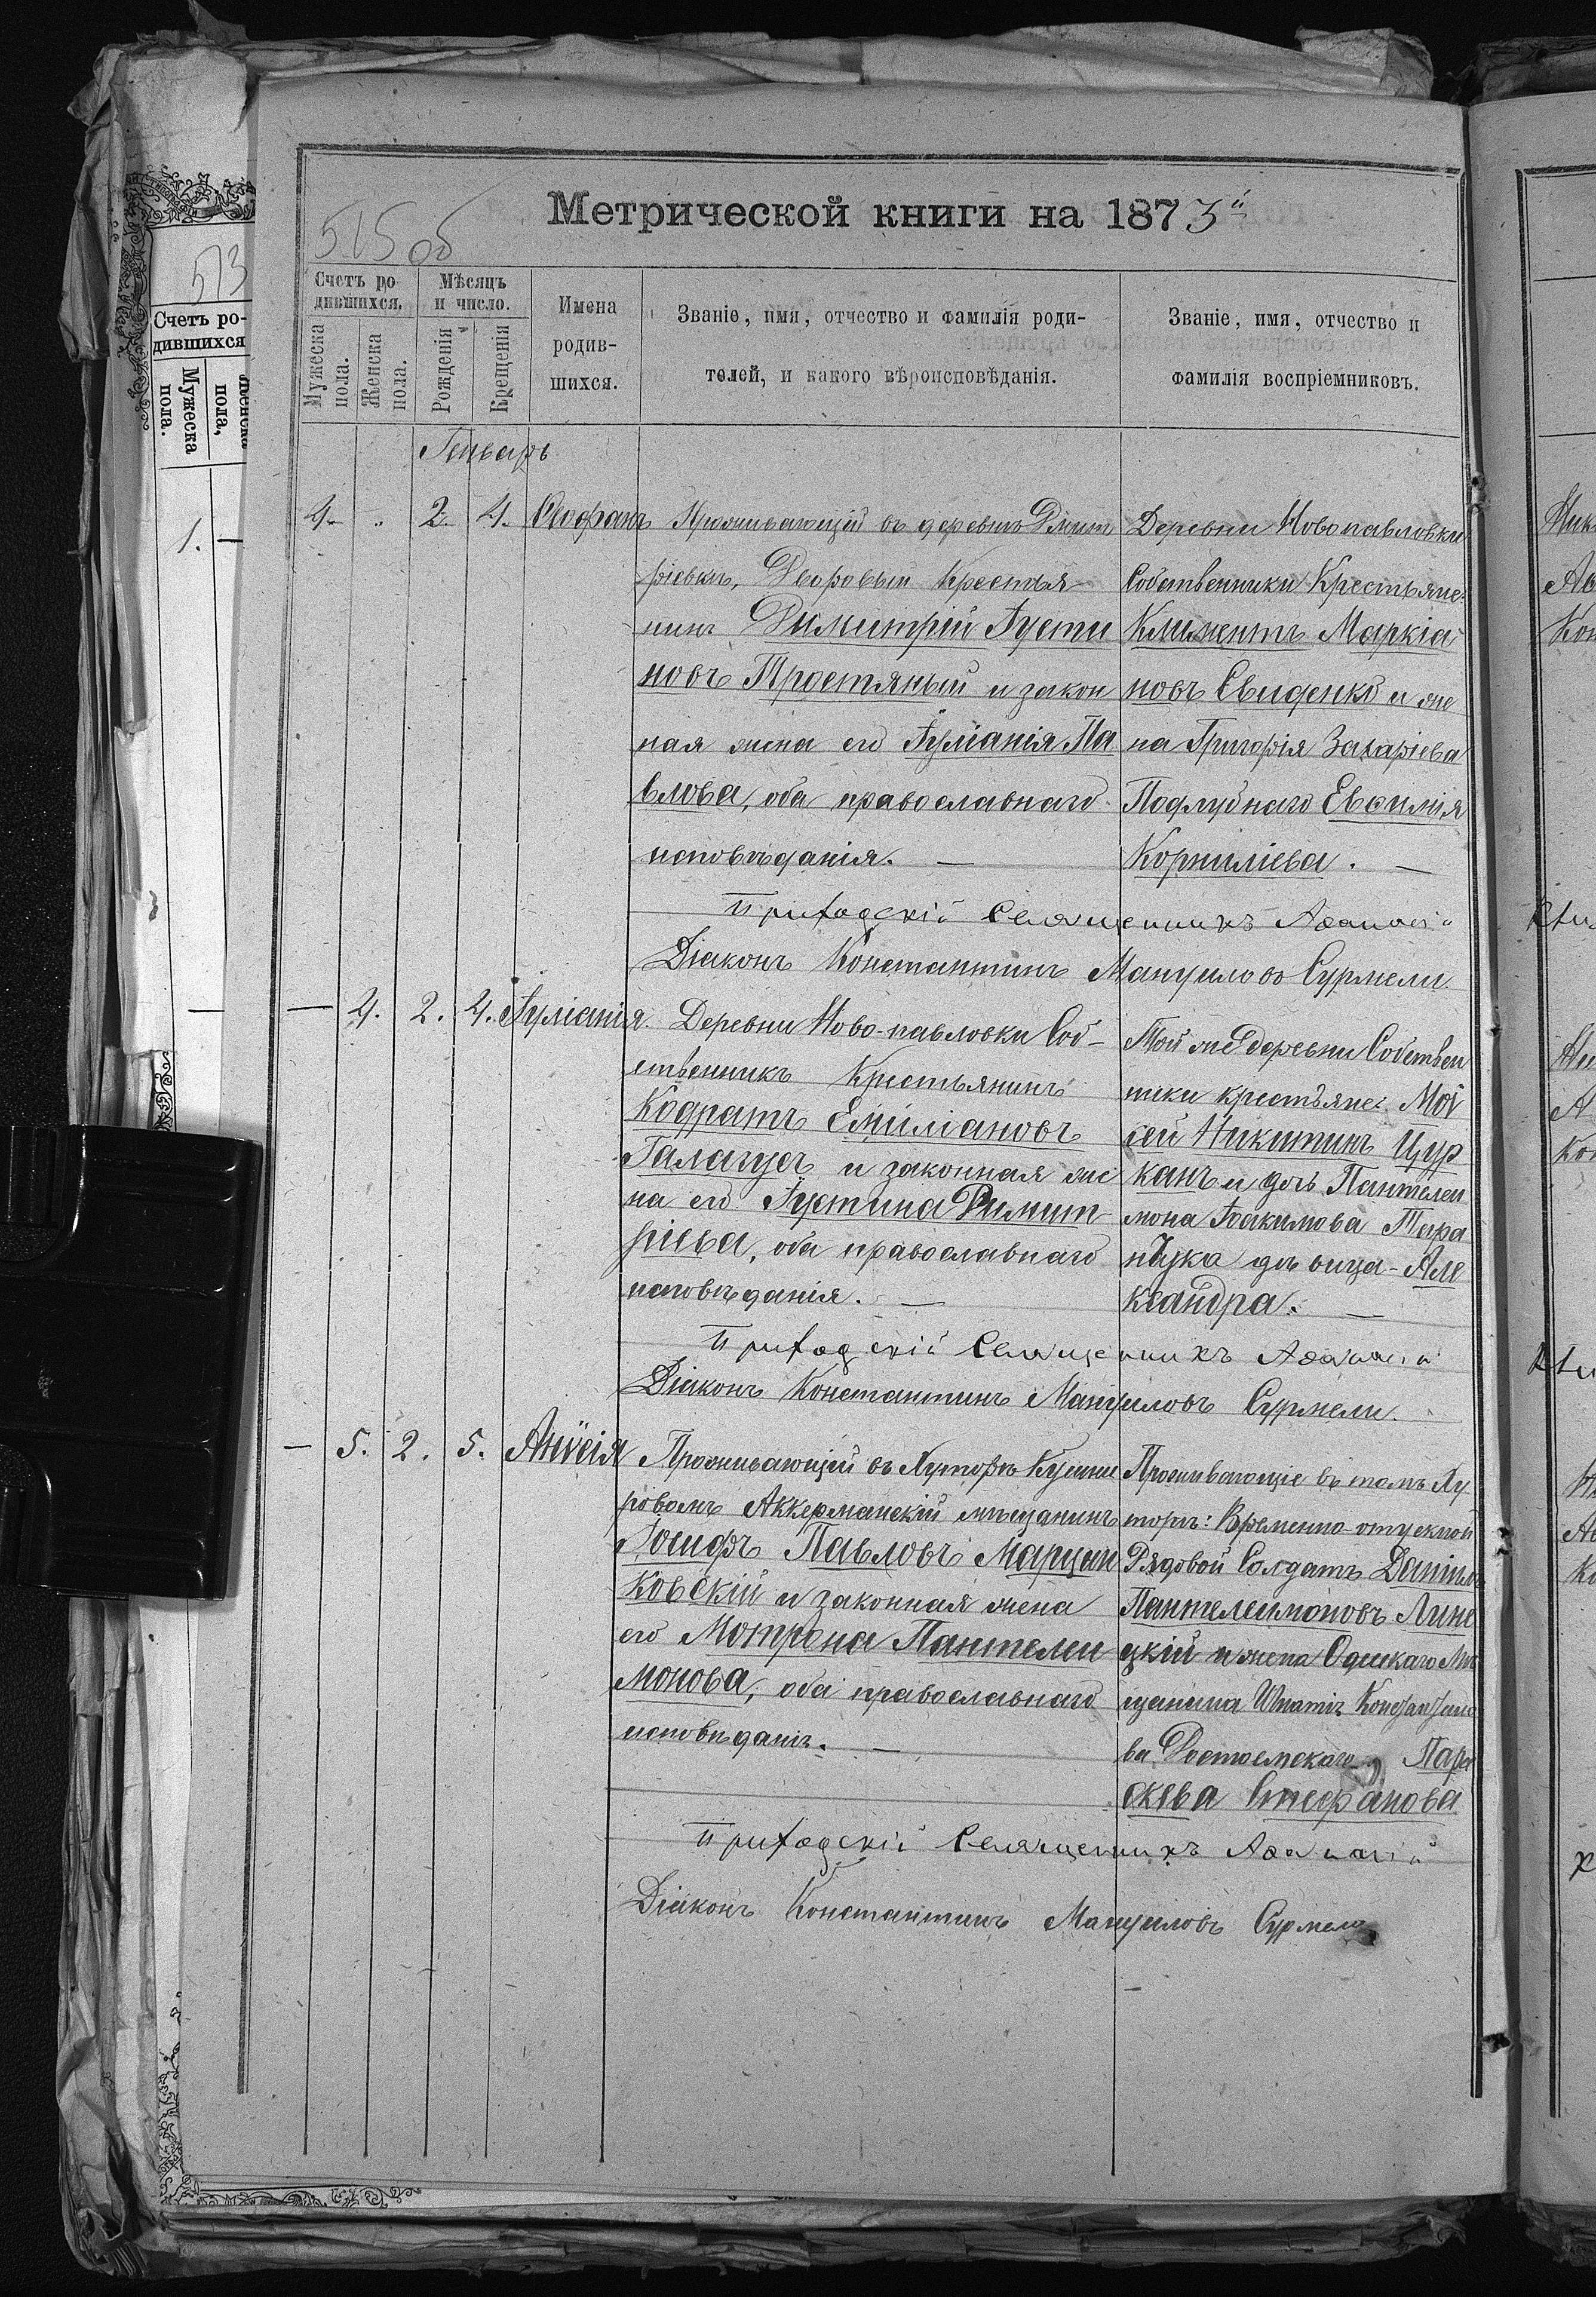 Метрической книги на 1873й
515 об
Счетъ ро-
дившихся.
Мѣсяцъ
и число.
Имена
родив-
шихся.
Званіе, имя, отчество и фамилія роди-
телей, и какого вѣроисповѣданія.
Званіе, имя, отчество и
фамилія воспріемниковъ.
Мужеска
пола.
Женска
пола.
Рожденія
Крещенія
Генварь
4. " 2. 4. Ѳеофанъ
Проживающій въ деревнѣ Димит
ріевкѣ, Дворовый Крестья-
нинъ Димитрій Іусти
новъ Простяный и закон
ная жена его Іуліанія Па
влова, оба православнаго
исповѣданія. —
Деревни Новопавловки
Собственники Крестьяне:
Климентъ Маркіа
новъ Свиденко и же
на Григорія Захаріева
Подлубнаго Евѳимія
Корниліева. —
Приходскій Священникъ Аѳанасій
Діаконъ Константинъ Мануиловъ Сурмели.
— 4. 2. 4. Іуліанія.
Деревни Ново-павловки Соб-
ственникъ Крестьянинъ
Кодратъ Емиліановъ
Галагусъ и законная же
на его Іустина Димит-
ріева, оба православнаго
исповѣданія. —
Той же деревни Собствен
ники крестьяне: Мои
сей Никитинъ Цур
канъ и дочь Пантелеи
мона Іоакимова
дѣвица - Але
ксандра. —
Приходскій Священникъ Аѳанасій
Діаконъ Константинъ Мануиловъ Сурмели.
— 5. 2. 5. Анѵсія
Проживающій въ Хуторѣ Кушни
ровомъ Аккерманскій мѣщанинъ
Іосифъ Павловъ Марцин
ковскій и законная жена
его Мотрона Пантелеи
монова, оба православнаго
исповѣданія. —
Проживающіе въ томъ Ху
торѣ: Временно-отпускной
Рядовой Солдатъ Даніилъ
Пантелеимоновъ Лине
цкій и жена Одесскаго Мѣ
щанина Игнатія
ва Пара
скева Стефанова
Приходскій Священникъ Аѳанасій
Діаконъ Константинъ Мануиловъ Сурмели
513
Счетъ ро-
дившихся
Мужеска
пола.
пола,
1. —